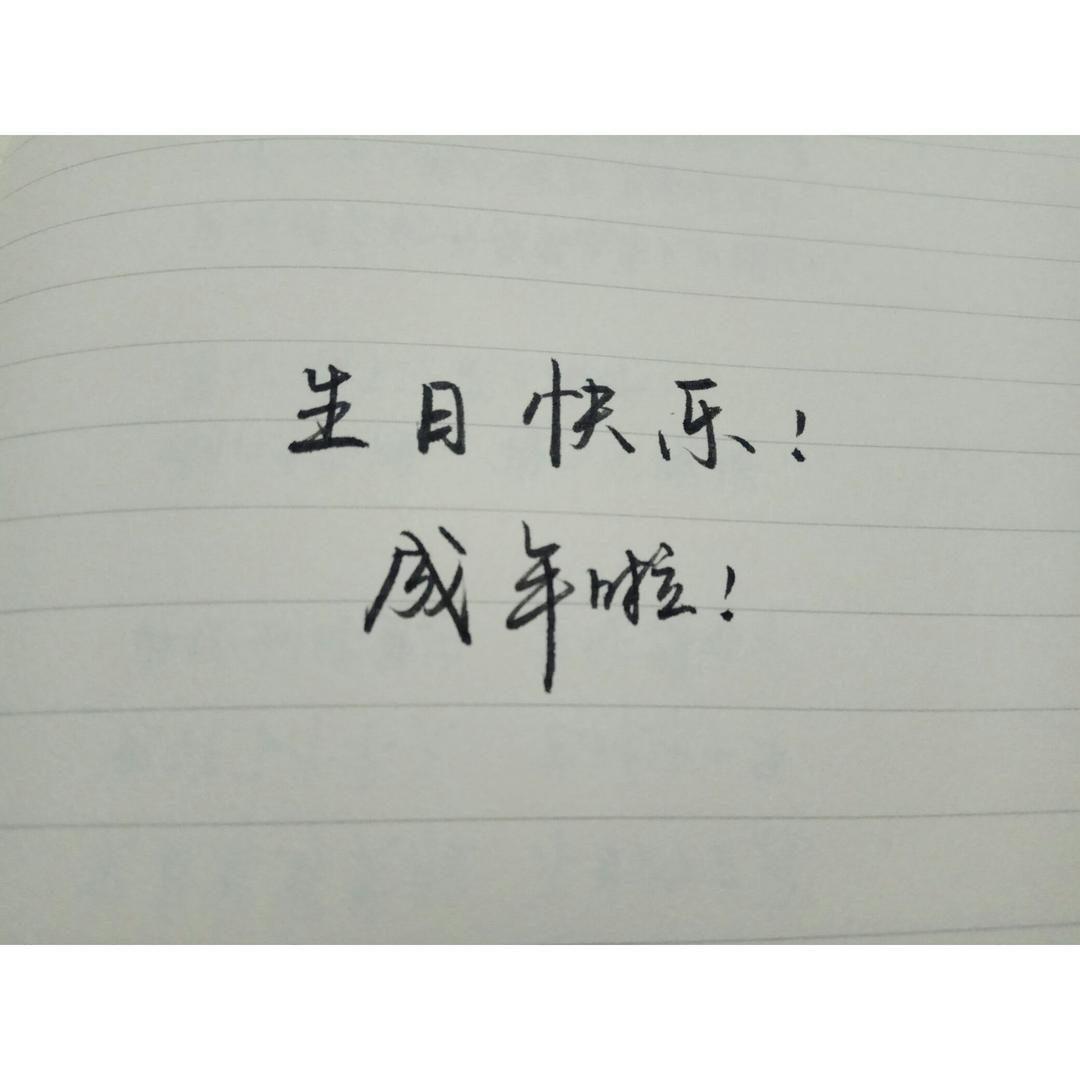 生日快乐！
成年啦！